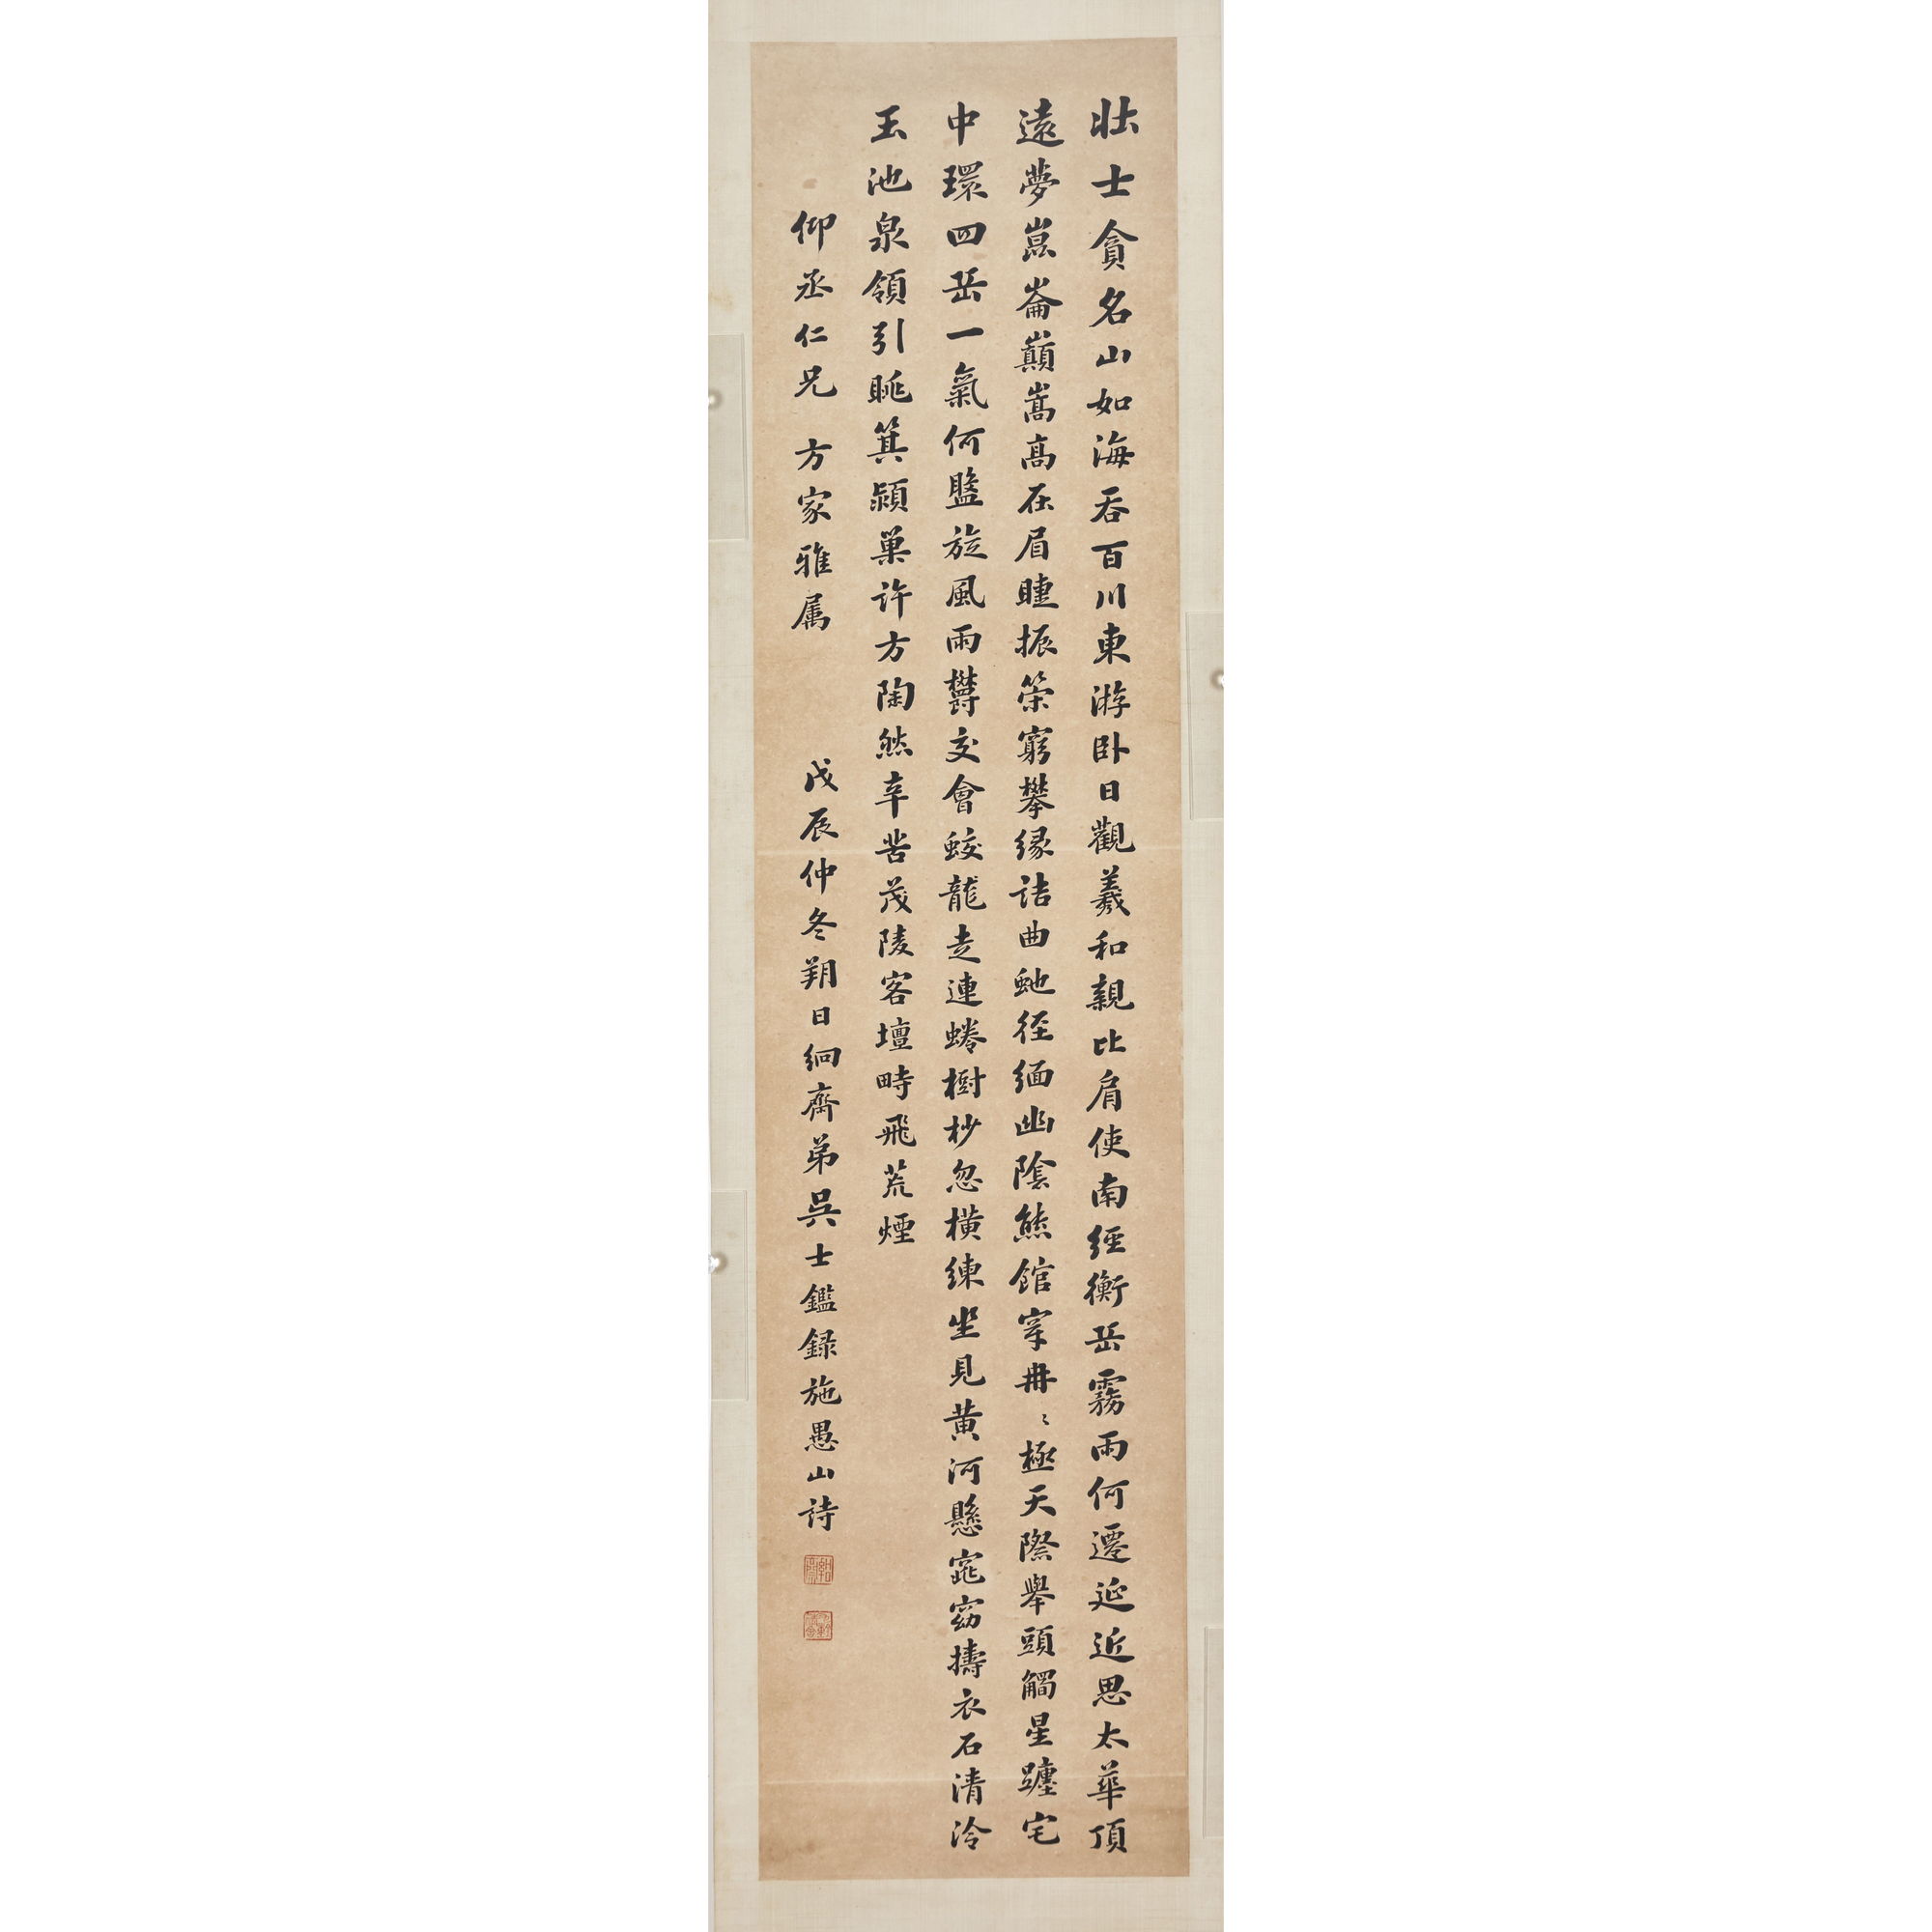 壯士貪名山如海吞百川東游卧日觀羲和親比肩使南經衡岳霧雨何遷延近思太華頂
遠夢崑崙巔嵩高在眉睫振策窮攀緣詰曲虵徑緬幽陰熊館穿冊〻極天際舉頭觸星躔宅
中環四岳一氣何盬旋風雨欝交會蛟龍走連蜷樹杪忽橫練坐見黄河懸窕窈擣衣石清泠
玉池泉領引眺箕潁巢許方陶然辛苦茂陵客壇畤飛荒煙
仰丞仁兄方家雅属
戊辰仲冬朔日絅齋弟吳士鑑録施愚山詩